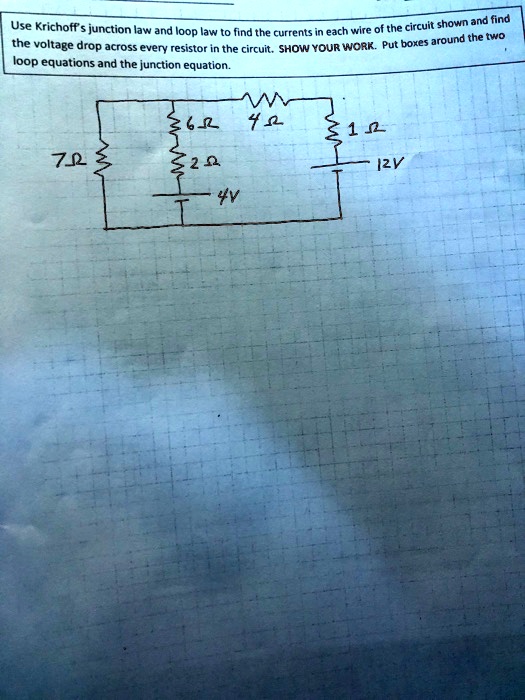 Use Krichoff's junction law and loop law to find the currents in each wire of the circuit shown and find
the voltage drop across every resistor in the circuit. SHOW YOUR WORK. Put boxes around the two
loop equations and the junction equation.
6Ω 4Ω
1Ω
7Ω 2Ω 12V
4V